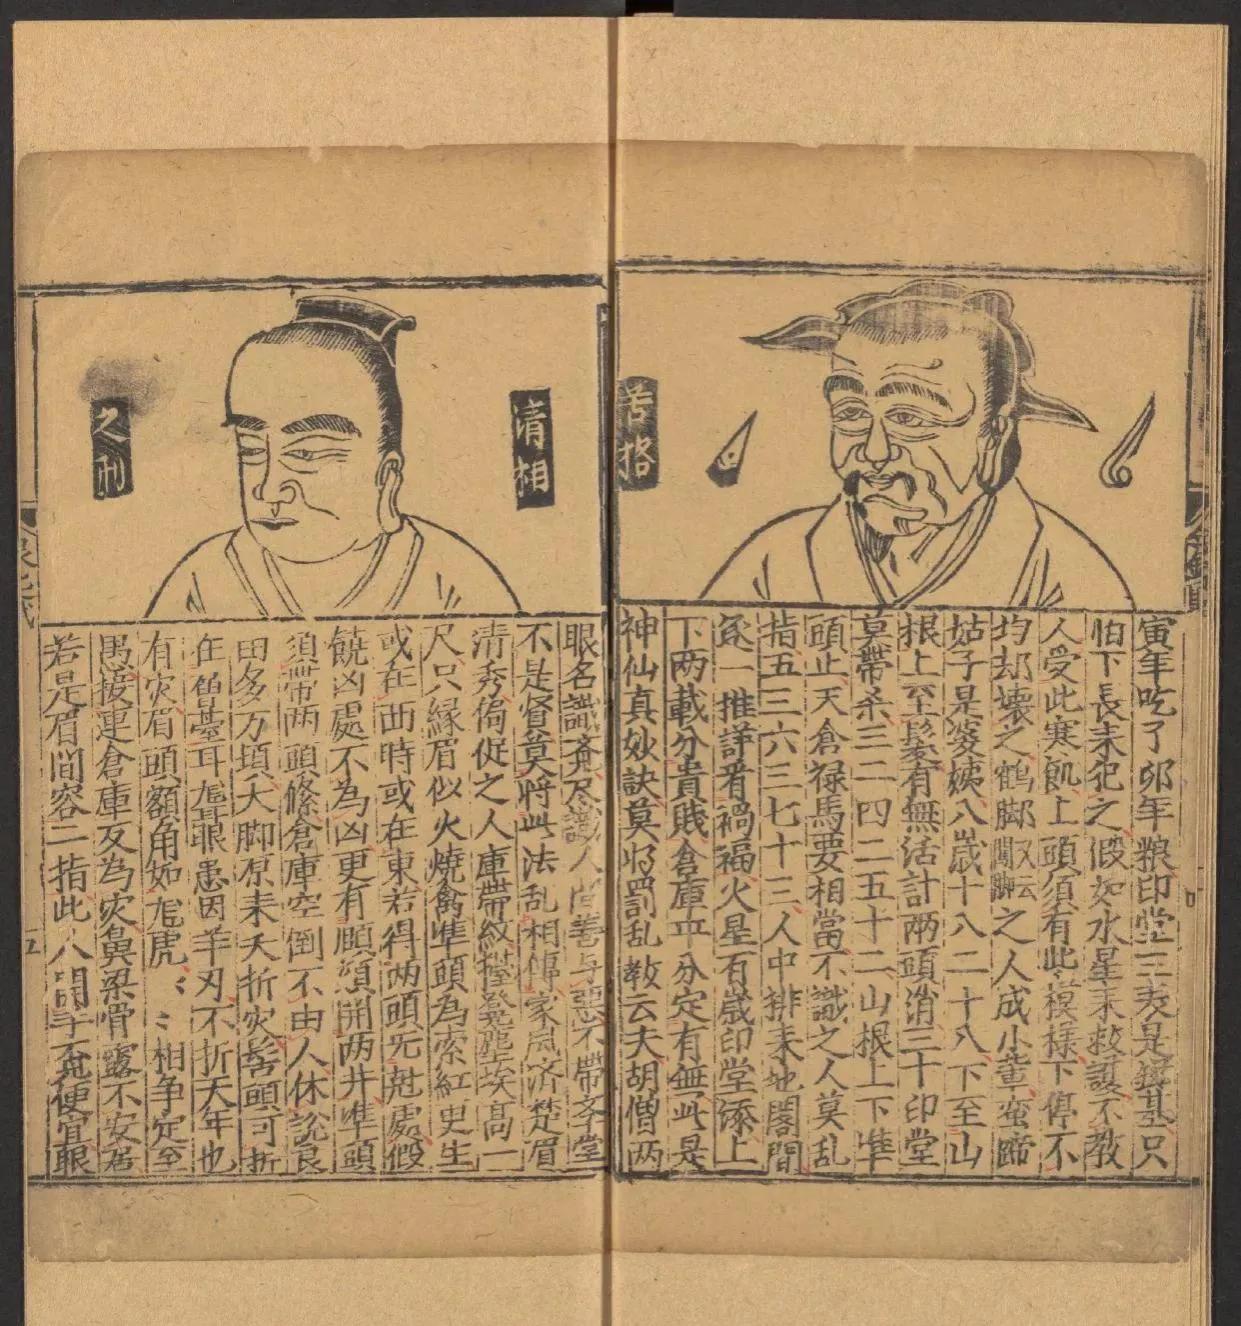 苦格
寅年吃了卯年粮印堂三夾是其只
怕下長来犯之假如水星来救護不教
人受此寒飢上頭須有此模樣下停不
均却壊之鹤脚又云閣脚之人成小輩蛮蹄
姑子是婆姨八歲十八二十八下至山
根上至髪有無活計兩頭消三十印堂
莫帶杀三二四二五十二山根上下準
頭止天倉禄馬要相當不識之人莫乱
指五三六三七十三人中排来地閣間
逐一推詳看禍福火星百歲印堂添上
下两載分貴賎倉庫平分定有無此是
神仙真妙訣莫将罰乱教云夫胡僧两
清相
之刑
眼名識人間善与惡不帶李堂
不是督莫将此法乱相傳家風济楚眉
清秀倚從之人庫帶紋埃高一
尺只緣眉似火燒禽準頭為索紅史生
或在西時或在東若得两頭无尅處假
饒凶處不為凶更有願須開两井準頭
須帶两頭絛倉庫空倒不由人休説良
田多万頃大脚原来夭折灾苦頭可折
在魚臺耳患因羊刃不折天年也
有灾眉頭額角如虎相争定至
愚接連倉庫反為灾鼻梁骨露不安居
若是眉間容二指此人開手便宜眼